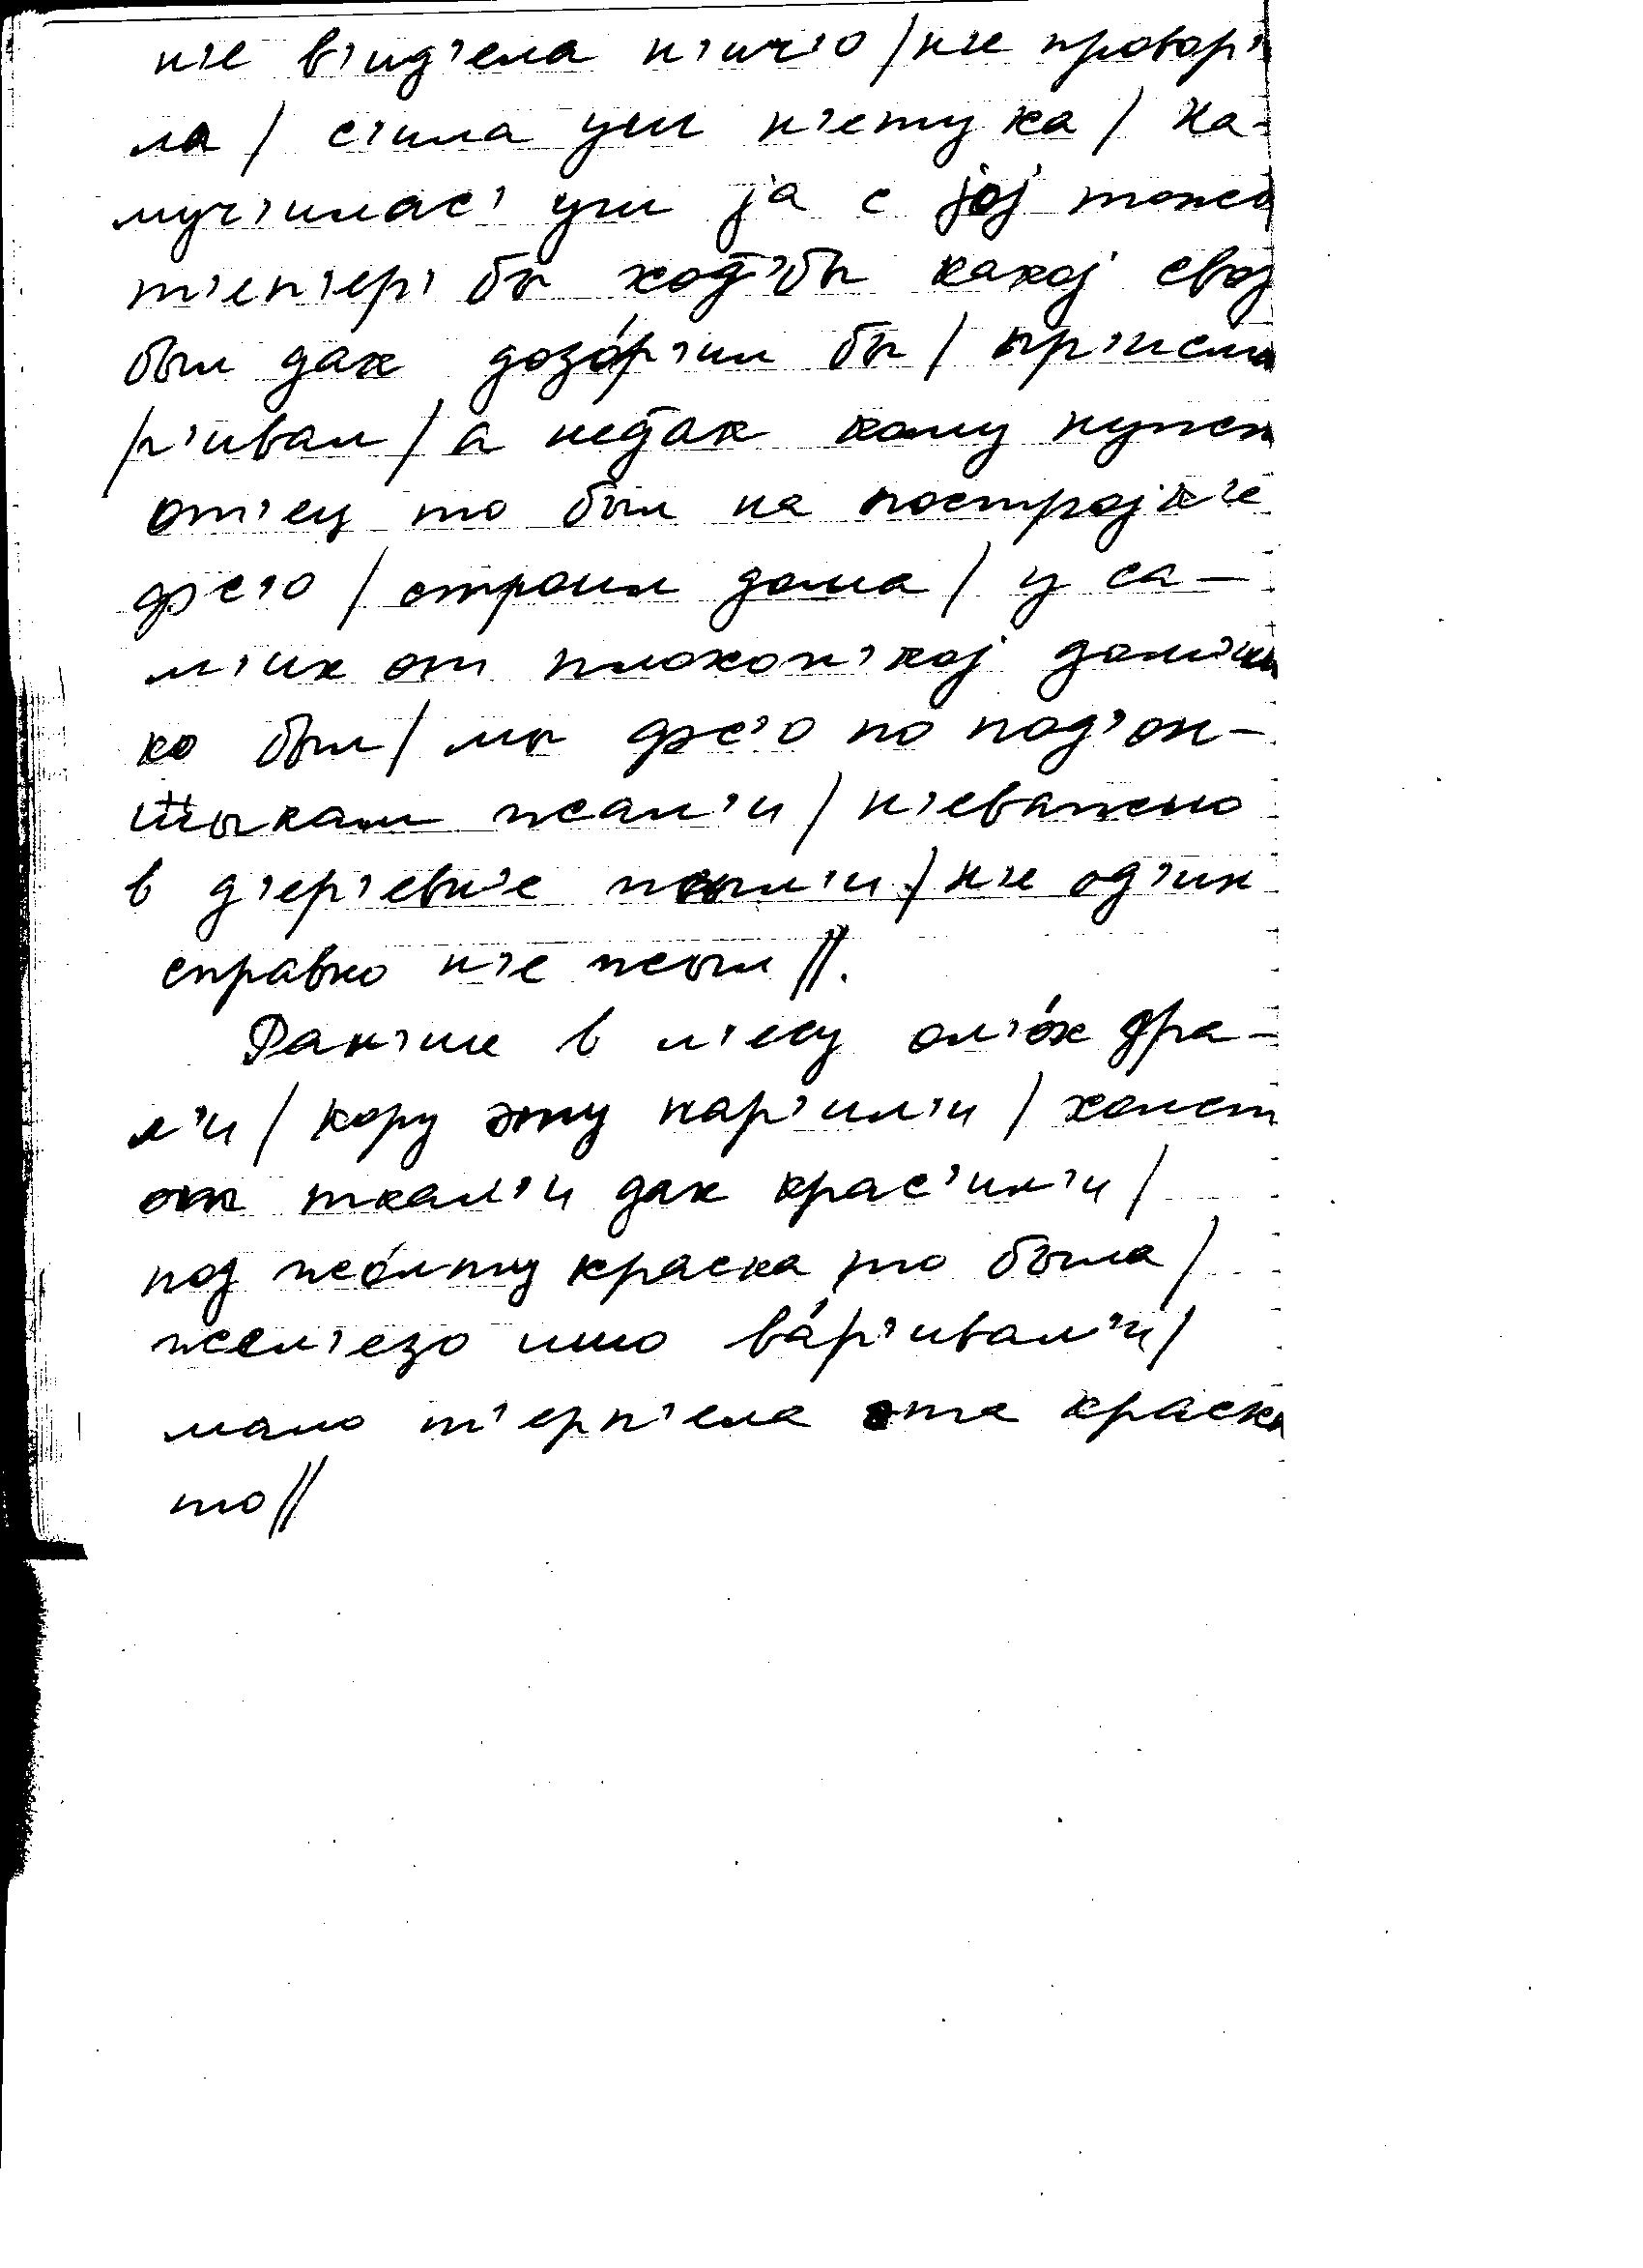 н'е в'ид'ела н'ич'о / н'е проворı
ла / с'ила уш н'ету ка / На-
муч'илас' уш ја с јој тожо
т'еп'ер' бы ход'бы какој свој
был дак дозо́р'ил бы / пр'исма
/р'ивал / а не так кому нужон
от'ец то был на постројк'е
фс'о / строил дома / у са-
м'их от плохон'кој дом'иш
ко был / мы фс'о по под'он-
шыкам жал'и / н'еважно
в д'ер'евн'е жыл'и / н'е од'ин
справно н'е жыл //.
Ран'ше в л'есу ол'о́х дра-
л'и / кору эту пар'ил'и / холст
от ткал'и дак крас'ил'и /
под жо́лту краска то была /
жел'езо што ва́р'ивал'и /
мало т'ерп'ела эта краска
то //